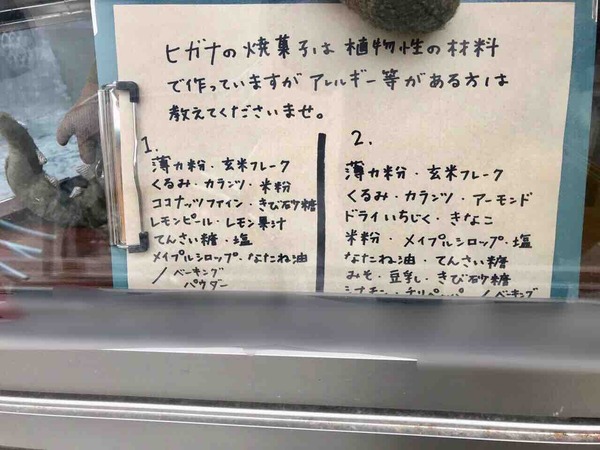 ヒガナの焼菓子は植物性の材料
で作っていますがアレルギー等がある方は
教えてくださいませ。
1.
薄力粉・玄米フレーク
くるみ・カランツ・米粉
ココナッツファイン・きび砂糖
レモンピール・レモン果汁
てんさい糖・塩
メイプルシロップ・なたね油
/ベーキング
パウダー
2.
薄力粉・玄米フレーク
くるみ・カランツ・アーモンド
ドライいちじく・きなこ
米粉・メイプルシロップ・塩
なたね油・てんさい糖
みそ・豆乳・きび砂糖
シナモン・ /ベーキング